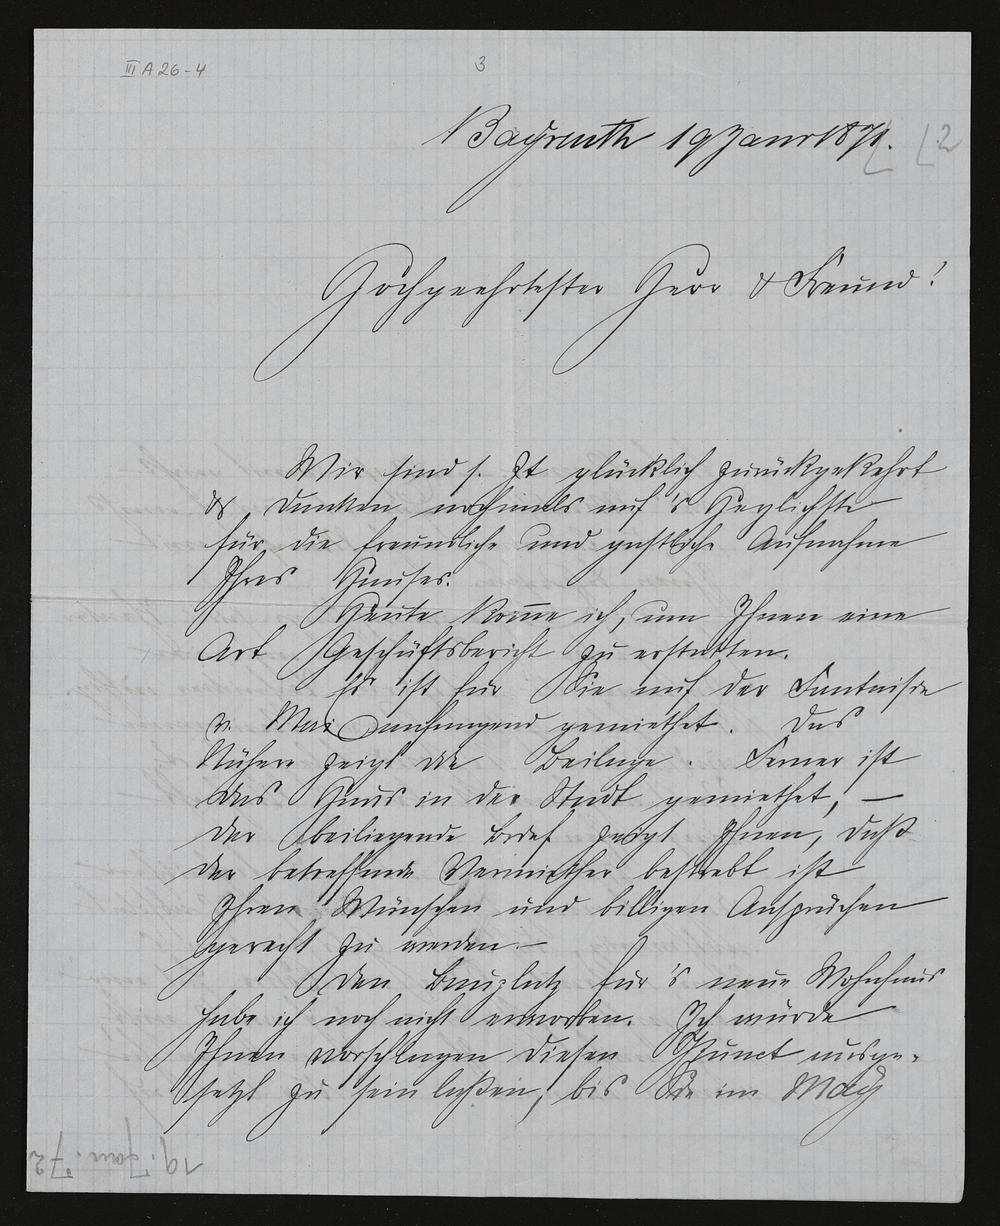 III A 26-4
3
Bayreuth 19 Januar 1871. [2
Hochgeehrtester Herr & Freund!
Wir sind s. Zt glücklich zurückgekehrt
& danken nochmals auf's Herzlichste
für die freundliche und gastliche Aufnahme
Ihres Hauses.
Heute kom̅e ich, um Ihnen eine
Art Geschäftsbericht zu erstatten.
Es ist für Sie auf der Fantaisie
v. Mai anfangend gemiethet. Das
Nähere zeigt die Beilage. Ferner ist
das Haus in der Stadt gemiethet, —
der beiliegende Brief zeigt Ihnen, daß
der betreffende Vermiether bestrebt ist
Ihren Wünschen und billigen Ansprüchen
gerecht zu werden. —
Den Bauplatz für's neue Wohnhaus
habe ich noch nicht erworben. Ich würde
Ihnen vorschlagen diesen Punct ausge-
setzt zu sein laßen, bis Sie im May
19. Jan. 72